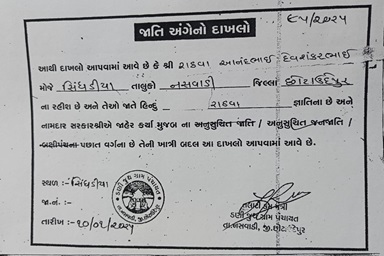 ૬૫/૨૦૨૫
જાતિ અંગેનો દાખલો
આથી દાખલો આપવામાં આવે છે કે શ્રી રાઠવા આનંદભાઈ દેવશંકરભાઈ
મોજે સિંધડીયા તાલુકો નસવાડી જિલ્લા છોટાઉદેપુર
ના રહીશ છે અને તેઓ જાતે હિન્દુ રાઠવા જ્ઞાતિના છે અને
નામદાર સરકારશ્રીએ જાહેર કર્યા મુજબ ના અનુસુચિત જાતિ / અનુસુચિત જનજાતિ /
બક્ષીપંચના પછાત વર્ગના છે તેની ખાત્રી બદલ આ દાખલો આપવામાં આવે છે.
સ્થળ :- સિંધડીયા
જા.નં. :-
તારીખ :- ૧૦/૦૧/૨૦૨૫
જુથ ગ્રામ પંચાયત
તલાટી કમ મંત્રી
જુથ ગ્રામ પંચાયત
તા.નસવાડી, જી.છોટાઉદેપુર